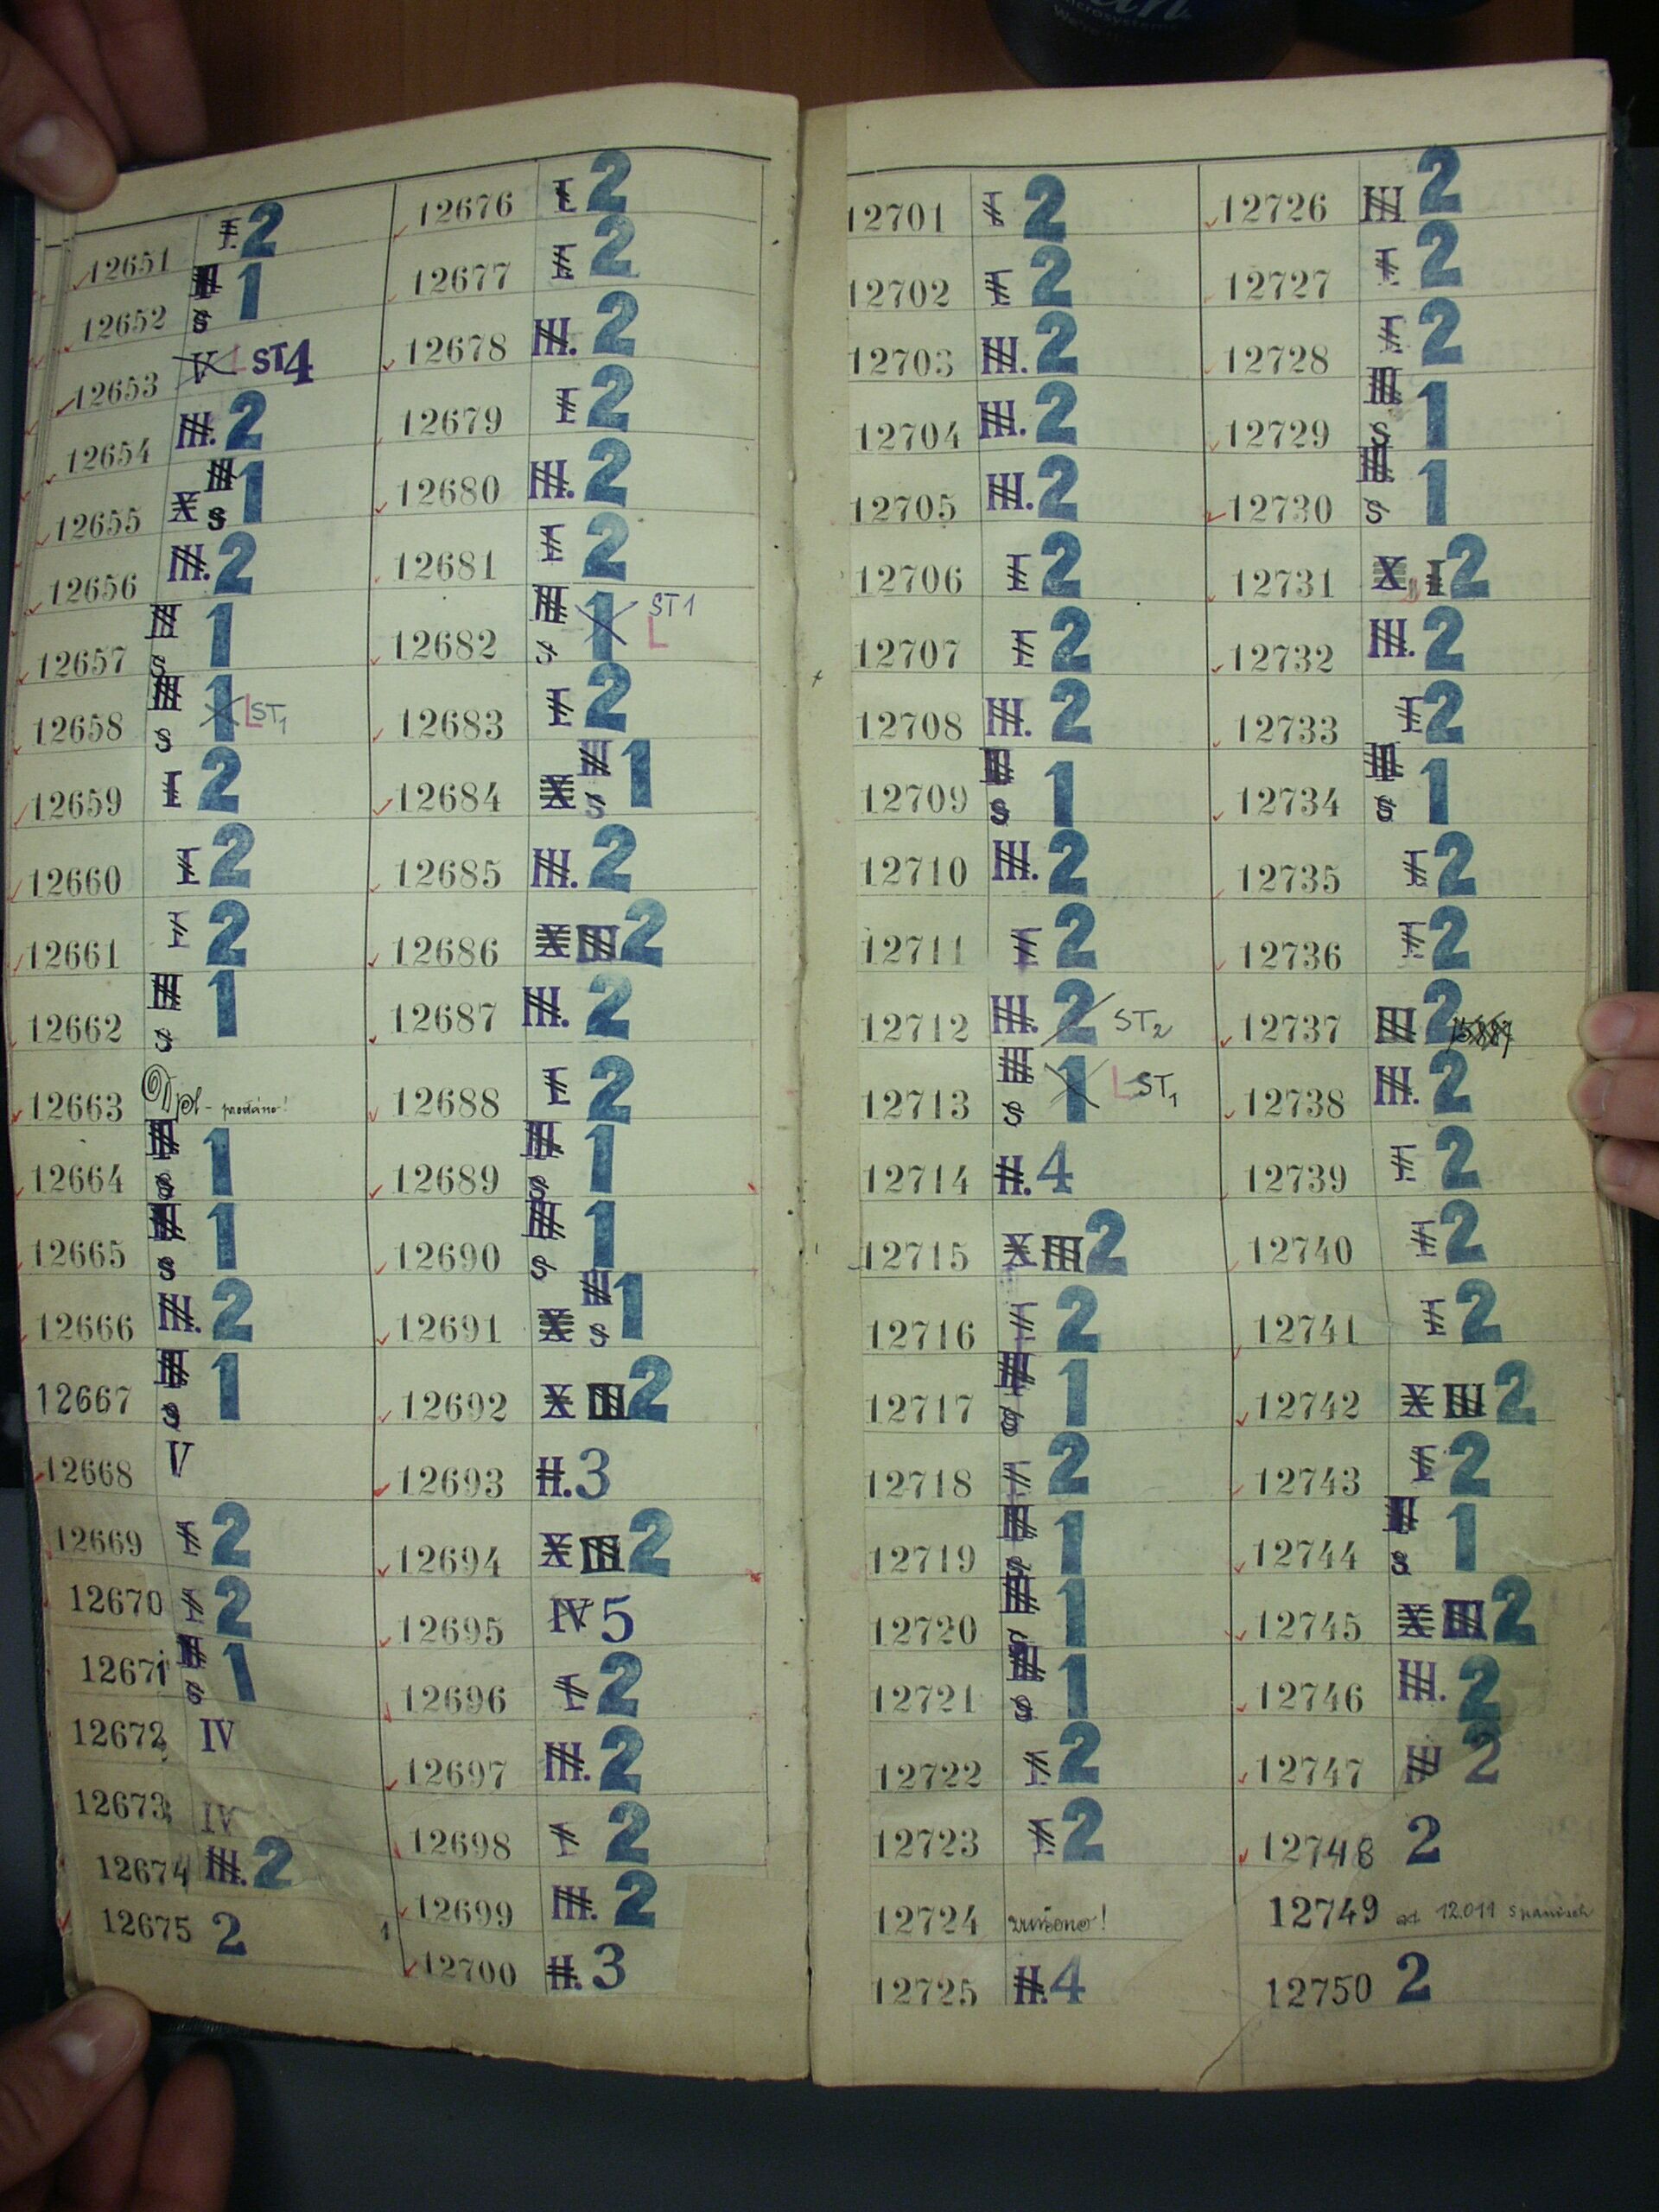 12651 I 2
12652 III s 1
12653 V L ST4
12654 III. 2
12655 X III s 1
12656 III. 2
12657 III s 1
12658 III s 1 L ST1
12659 I 2
12660 I 2
12661 I 2
12662 III s 1
12663 Dpl - prodáno!
12664 III s 1
12665 III s 1
12666 III. 2
12667 III s 1
12668 V
12669 I 2
12670 I 2
12671 II s 1
12672 IV
12673 IV
12674 III. 2
12675 2
12676 I 2
12677 I 2
12678 III. 2
12679 I 2
12680 III. 2
12681 I 2
12682 III s 1 ST1 L
12683 I 2
12684 X III s 1
12685 III. 2
12686 X III 2
12687 III. 2
12688 I 2
12689 III s 1
12690 III s 1
12691 X III s 1
12692 X III 2
12693 II. 3
12694 X III 2
12695 IV 5
12696 I 2
12697 III. 2
12698 I 2
12699 III. 2
12700 II. 3
12701 I 2
12702 I 2
12703 III. 2
12704 III. 2
12705 III. 2
12706 I 2
12707 I 2
12708 III. 2
12709 III s 1
12710 III. 2
12711 I 2
12712 III. 2 ST2
12713 III s 1 L ST1
12714 II. 4
12715 X III 2
12716 I 2
12717 III s 1
12718 I 2
12719 III s 1
12720 III s 1
12721 III s 1
12722 I. 2
12723 I. 2
12724 zrušeno!
12725 II. 4
12726 III 2
12727 I 2
12728 I 2
12729 III s 1
12730 III s 1
12731 X I 2
12732 III. 2
12733 I 2
12734 III s 1
12735 I 2
12736 I 2
12737 III 2
12738 III. 2
12739 I 2
12740 I 2
12741 I 2
12742 X III 2
12743 I 2
12744 III s 1
12745 X III 2
12746 III. 2
12747 III 2
12748 2
12749 12.011 spanisch
12750 2